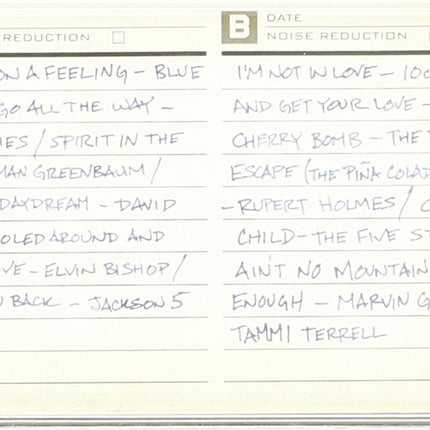 REDUCTION
ON A FEELING – BLUE
GO ALL THE WAY –
IES / SPIRIT IN THE
MAN GREENBAUM /
DAYDREAM – DAVID
OLED AROUND AND
VE – ELVIN BISHOP /
BACK – JACKSON 5
B DATE
NOISE REDUCTION
I'M NOT IN LOVE – 10C
AND GET YOUR LOVE –
CHERRY BOMB – THE
ESCAPE (THE PIÑA COLAD
– RUPERT HOLMES / C
CHILD – THE FIVE ST
AIN'T NO MOUNTAIN
ENOUGH – MARVIN G
TAMMI TERRELL